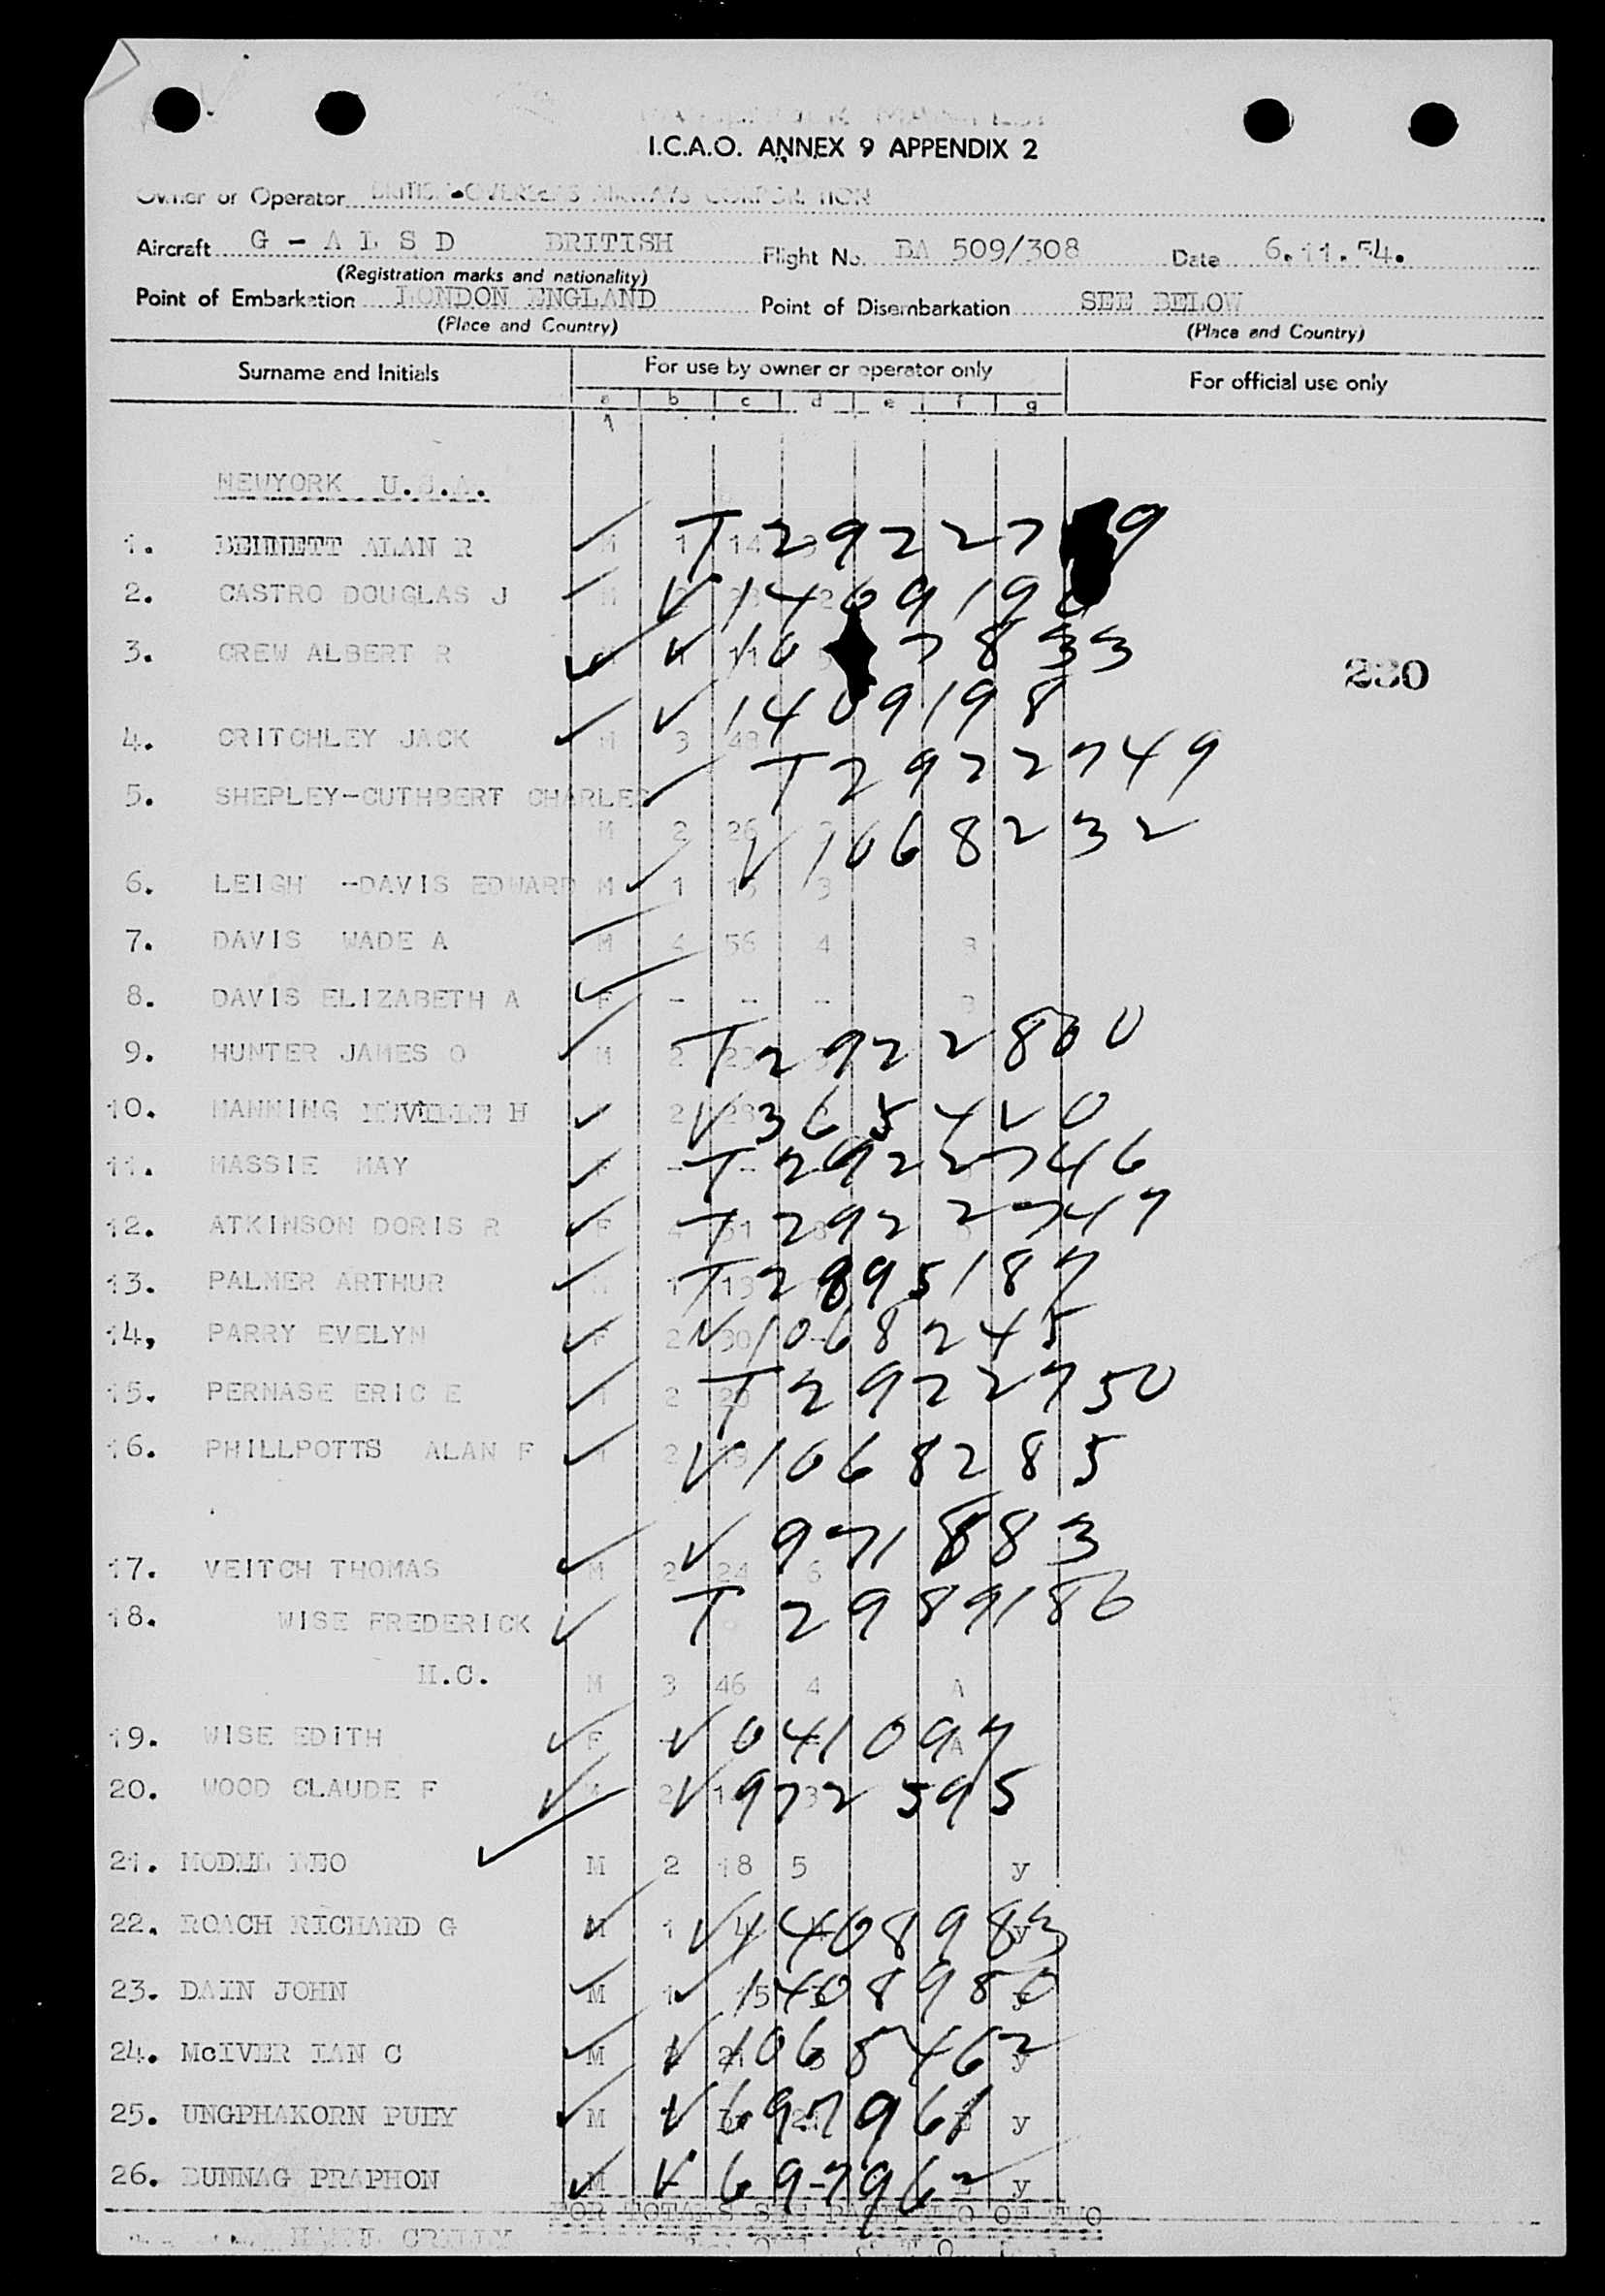 I.C.A.O. ANNEX 9 APPENDIX 2
Owner or Operator BRITISH OVERSEAS AIRWAYS CORPORATION
Aircraft G - A L S D BRITISH Flight No. BA 509/308 Date 6.11.54.
(Registration marks and nationality)
Point of Embarkation LONDON ENGLAND Point of Disembarkation SEE BELOW
(Place and Country) (Place and Country)
Surname and Initials For use by owner or operator only For official use only
a b c d e f g
NEWYORK U.S.A.
1. BENNETT ALAN R M 1 14 3 T 292277 9
2. CASTRO DOUGLAS J M V 140919
3. CREW ALBERT R V 10 7833
230
V 1409198
4. CRITCHLEY JACK M 3 48
T 2922749
5. SHEPLEY-CUTHBERT CHARLES
M 2 26 V 1068232
6. LEIGH -DAVIS EDWARD M 1 15 3
7. DAVIS WADE A M 4 56 4 B
8. DAVIS ELIZABETH A F - - - B
9. HUNTER JAMES O M 2 T 2922800
10. MANNING NEVILLE H 2 V 365420
11. MASSIE MAY F - T 2922746
12. ATKINSON DORIS R F 4 T 2922747
13. PALMER ARTHUR M 1 13 T 2895187
14, PARRY EVELYN F 2 30 V 1068245
15. PERNASE ERIC E M 2 T 2922750
16. PHILLPOTTS ALAN F M 2 V 1068285
V 971883
17. VEITCH THOMAS M 2 24 6
18. WISE FREDERICK T 2989186
H.C. M 3 46 4 A
19. WISE EDITH F - V 041097 A
20. WOOD CLAUDE F 2 3 V 972595
21. MODEL LEO M 2 18 5 y
22. ROACH RICHARD G M 1 V 1408983 y
23. DAIN JOHN M 1 15 V 1408980 y
24. McIVER IAN C M 21 V 1068462 y
25. UNGPHAKORN PUEY M V 697961 y
26. BUNNAG PRAPHON M V 697962 y
FOR TOTALS SEE PAGE TWO OF TWO